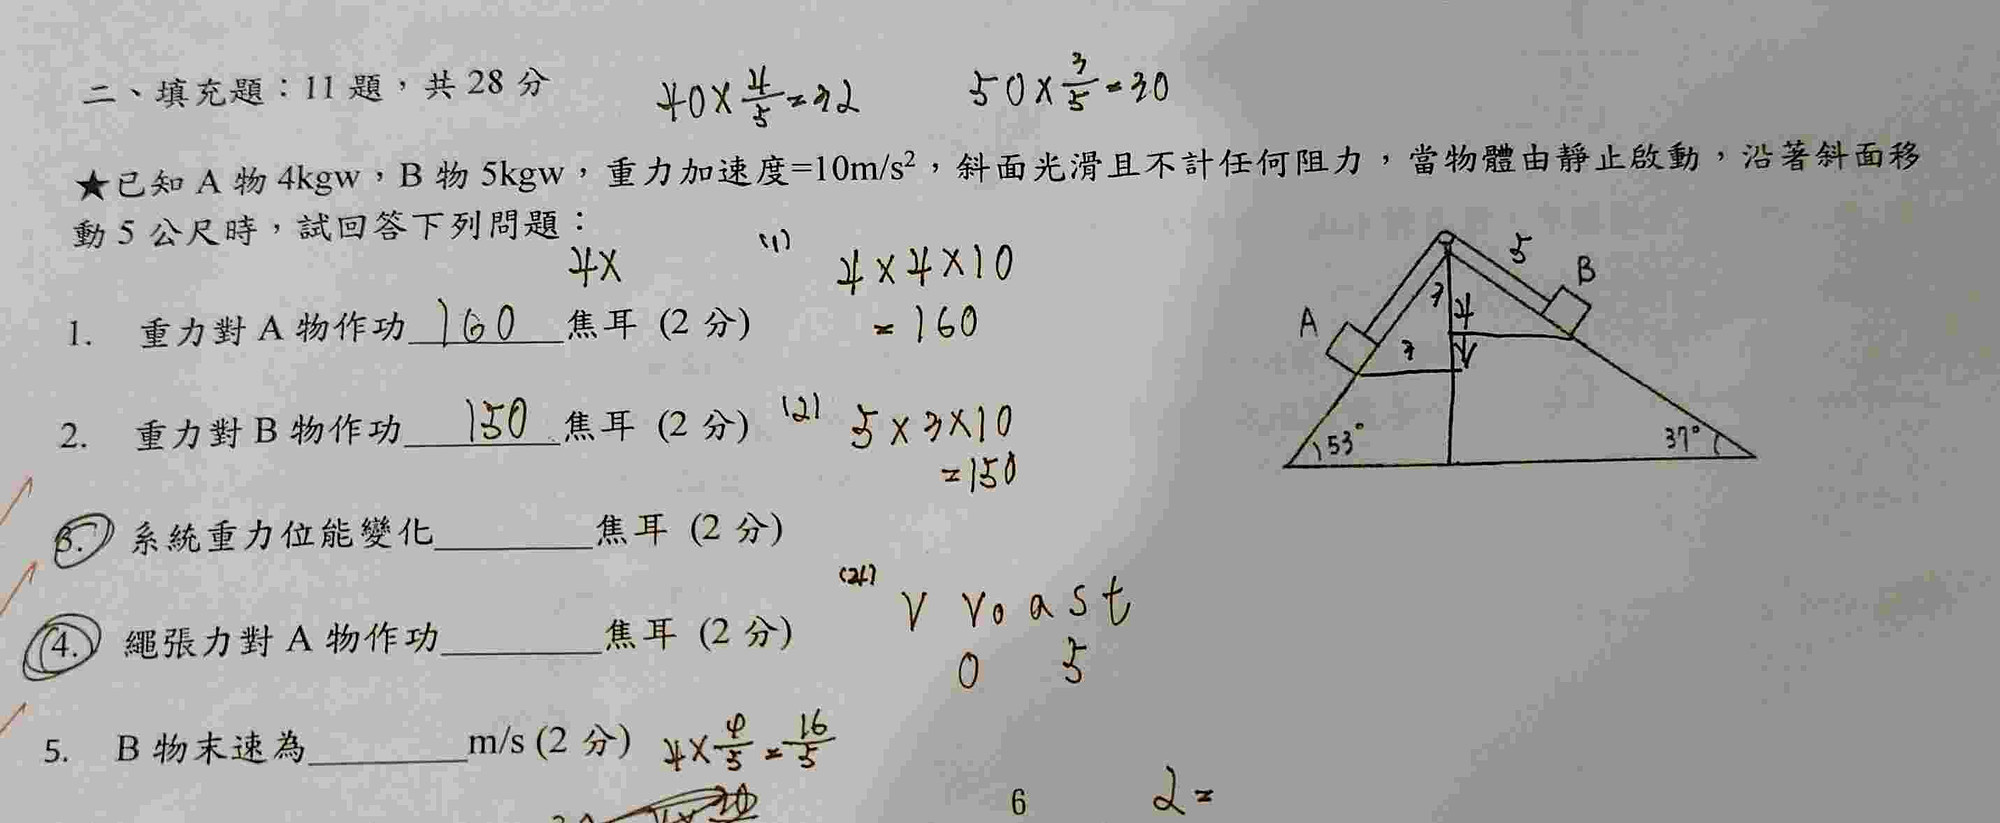 二、填充題：11 題，共 28 分
40×4/5=32
50×3/5=30
★已知 A 物 4kgw，B 物 5kgw，重力加速度=10m/s²，斜面光滑且不計任何阻力，當物體由靜止啟動，沿著斜面移
動 5 公尺時，試回答下列問題：
4×
(1) 4×4×10
=160
1. 重力對 A 物作功 160 焦耳 (2 分)
2. 重力對 B 物作功 150 焦耳 (2 分)
(2) 5×3×10
=150
3. 系統重力位能變化________焦耳 (2 分)
4. 繩張力對 A 物作功________焦耳 (2 分)
V V₀ a s t
0 5
5. B 物末速為________m/s (2 分)
4×4/5=16/5
A
5
B
4
53°
37°
6
2=